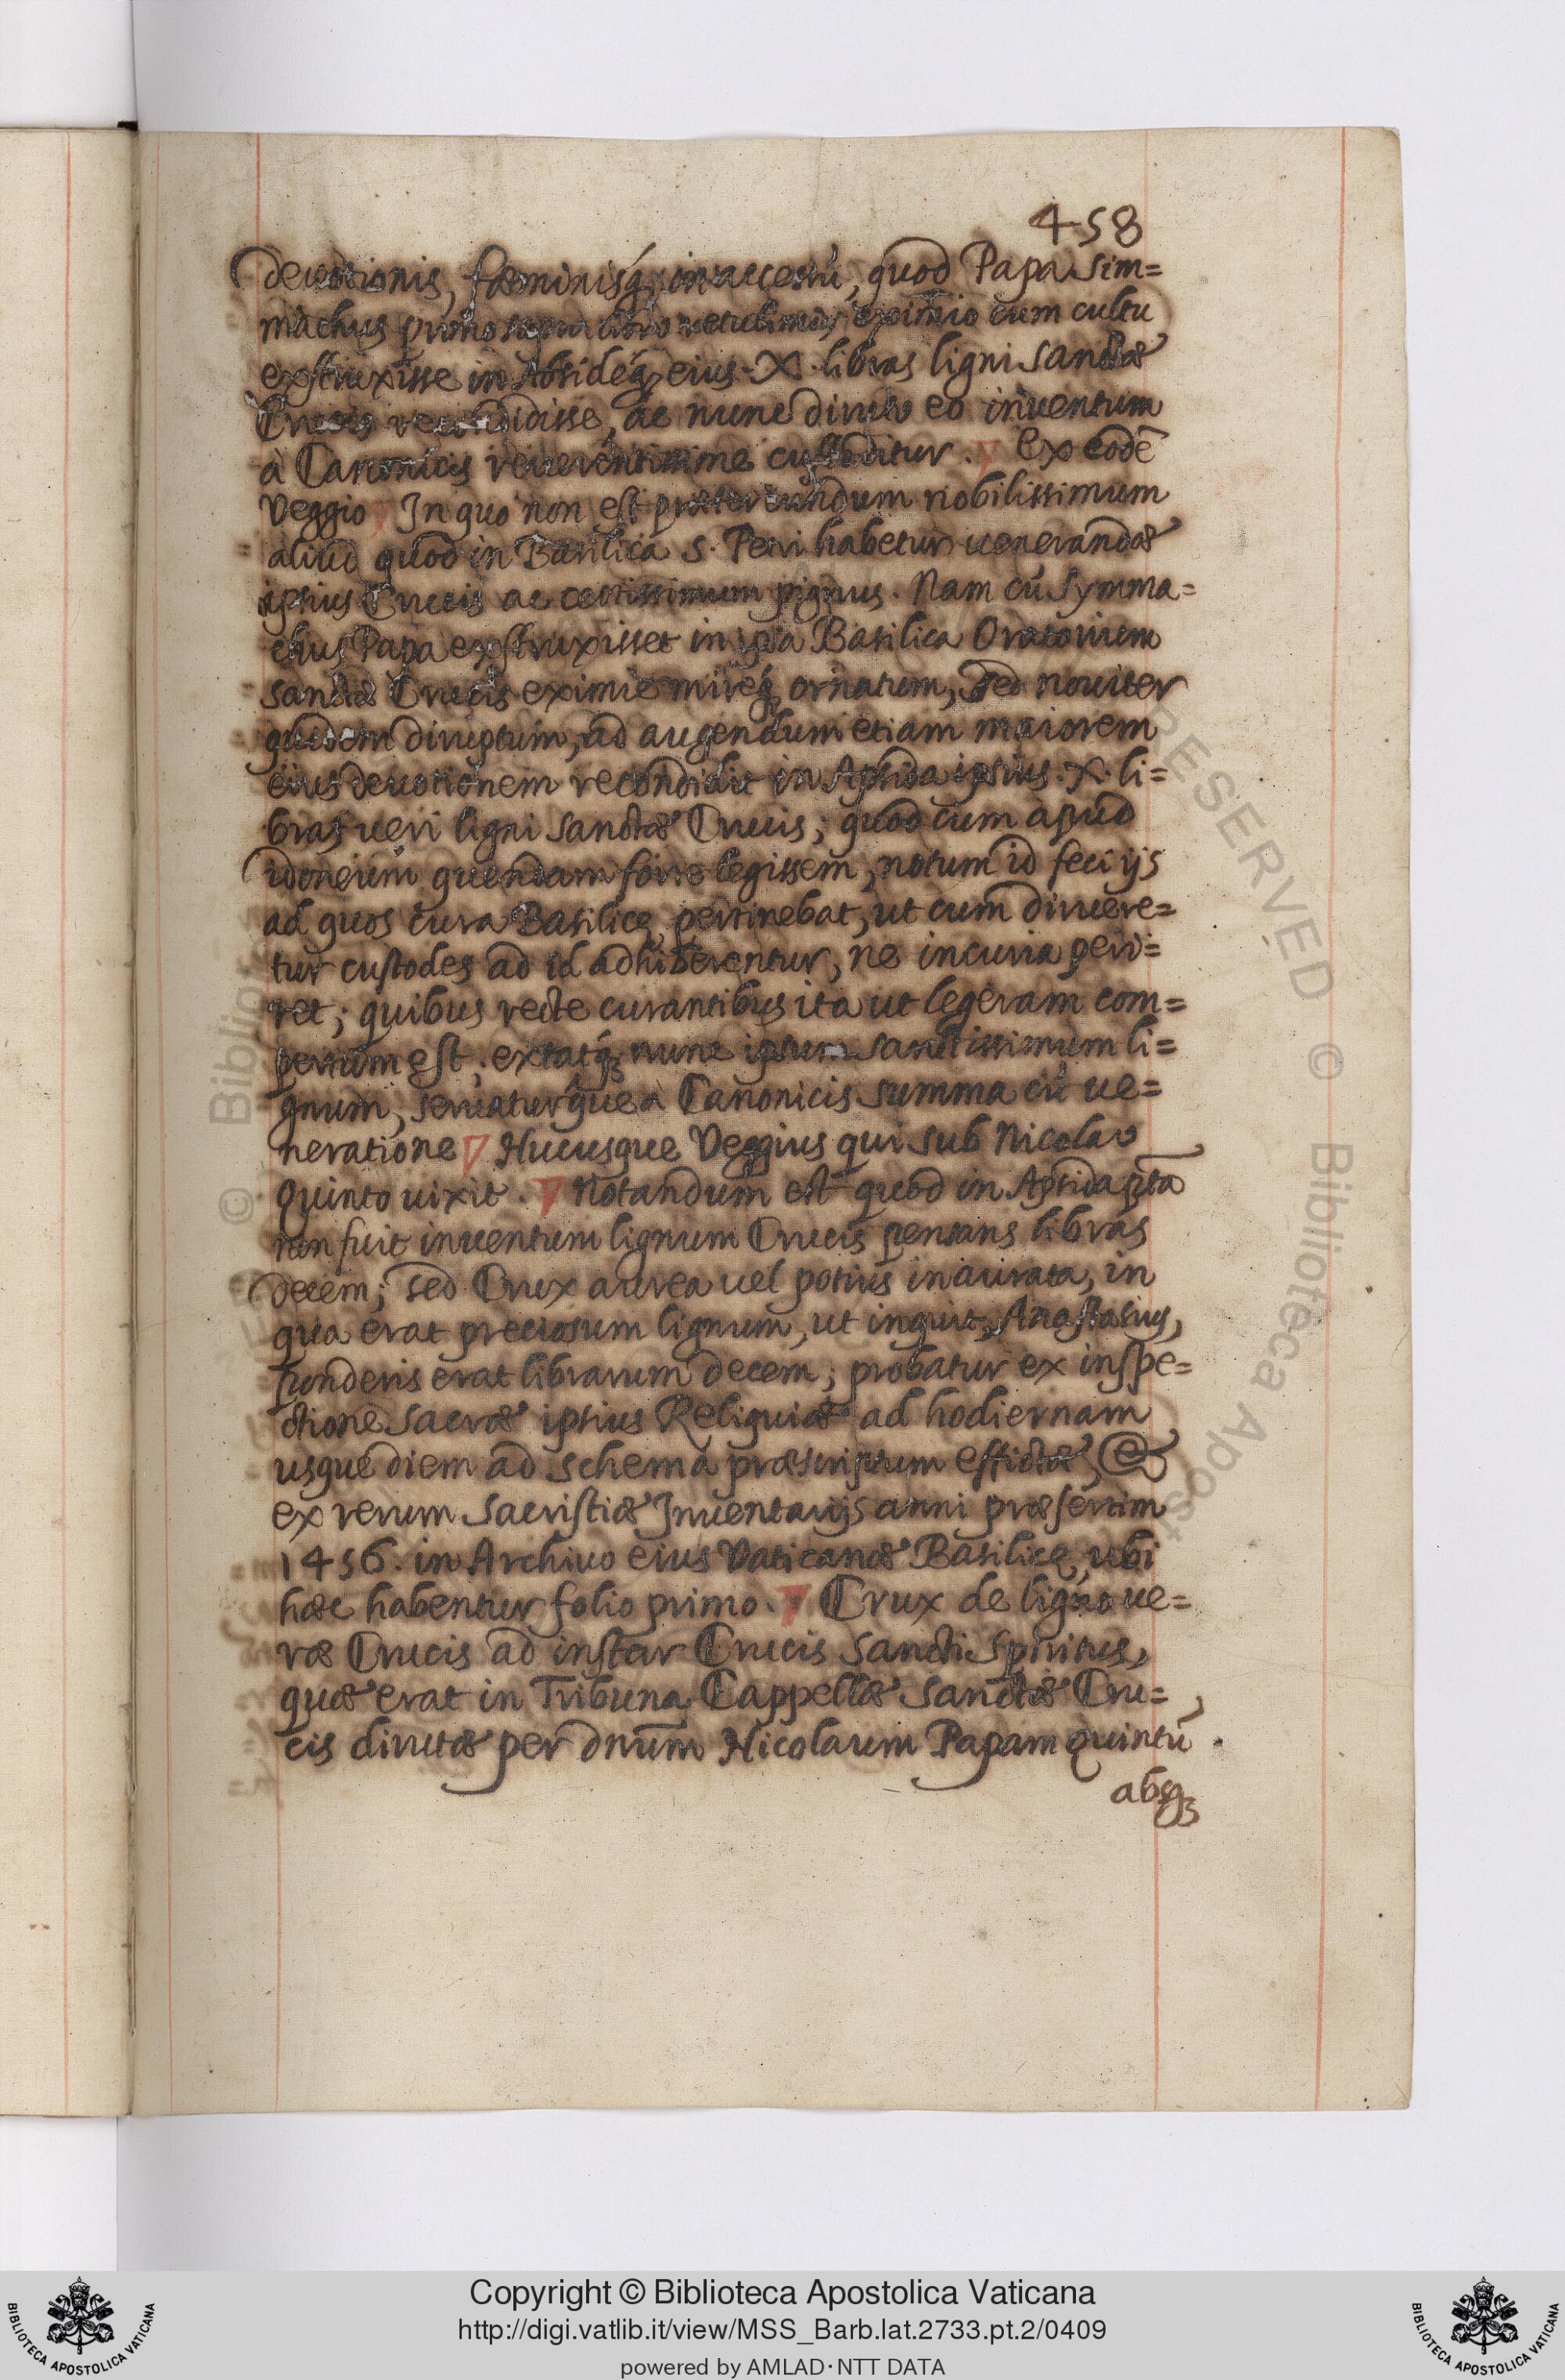 458
deuotionis, fœminisq́; inaccessũ, quod Papa Sim=
machus primo supra libro retulimus eximio cum cultu
exstruxisse in Absideq́; eius .X. libras ligni sanctæ
Crucis recondidisse, ac nunc diruto eo inuentum
à Canonicis reuerentissime custoditur. Ex eodẽ
Veggio In quo non est prætereundum nobilissimum
aliud quod in Basilica S. Petri habetur uenerandæ
ipsius Crucis ac certissimum pignus. Nam cũ Symma=
chus Papa exstruxisset in ipsa Basilica Oratorium
sanctæ Crucis eximie mireq́; ornatum, sed nouiter
quidem diruptum, ad augendum etiam maiorem
eius deuotionem recondidit in Apsida ipsius .X. li=
bras ueri ligni sanctæ Crucis; quod cum apud
idoneum quendam forte legissem, notum id feci ijs
ad quos cura Basilicę pertinebat, ut cum dirruere=
tur custodes ad id adhiberentur, ne incuria peri=
ret; quibus recte curantibus ita ut legeram com=
pertum est; extatq́; nunc ipsum sanctissimum li=
gnum, seruaturque a Canonicis summa cũ ue=
neratione Hucusque Veggius qui sub Nicolao
Quinto uixit. Notandum est quod in Apsida p̃ta
non fuit inuentum lignum Crucis pensans libras
decem; sed Crux aurea uel potius inaurata, in
qua erat preciosum lignum, ut inquit Anastasius,
ponderis erat librarum decem; probatur ex inspe=
ctione sacræ ipsius Reliquiæ ad hodiernam
usque diem ad schema præscriptum effictæ, &
ex rerum Sacristiæ Inuentarijs anni præsertim
1456. in Archiuo eius Vaticanæ Basilicę, ubi
hæc habentur folio primo. Crux de ligno ue=
ræ Crucis ad instar Crucis Sancti Spiritus,
quæ erat in Tribuna Cappellæ Sanctæ Cru=
cis dirutæ per dnũm Nicolaum Papam quintũ.
absq;
© Biblioteca Apost
RESERVED
© Biblio
Copyright © Biblioteca Apostolica Vaticana
http://digi.vatlib.it/view/MSS_Barb.lat.2733.pt.2/0409
powered by AMLAD·NTT DATA
BIBLIOTECA APOSTOLICA VATICANA
BIBLIOTECA APOSTOLICA VATICANA